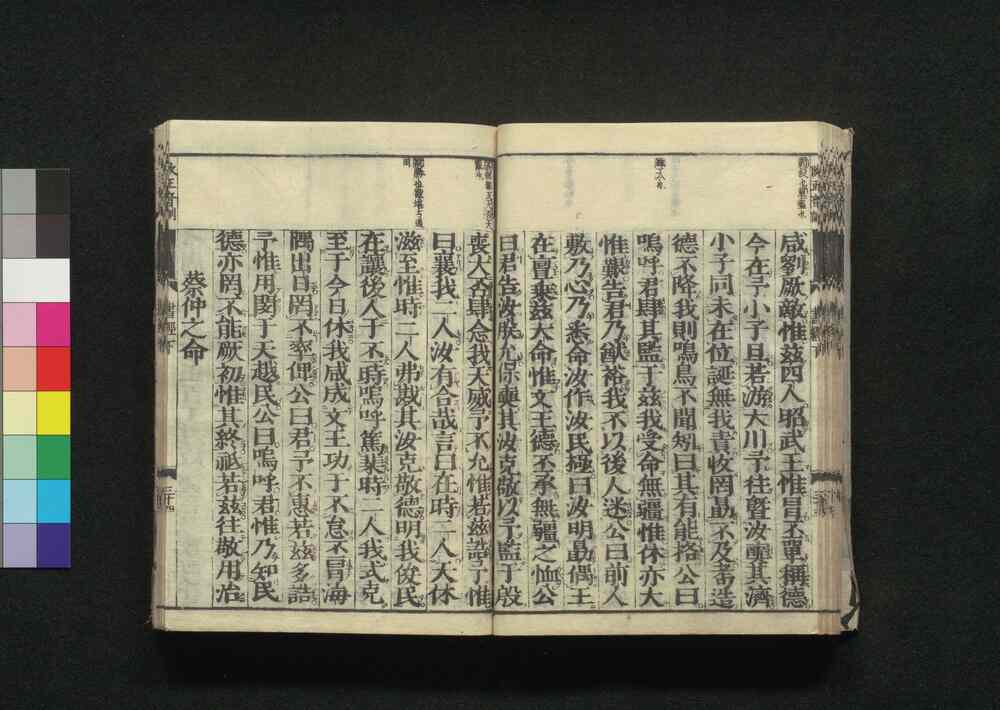 咸劉厥敵惟玆四人昭武王惟冒丕單稱德
今在予小子旦若游大川予往曁汝奭其濟
小子同未在位誕無我責收罔勗不及耇造
德不降我則鳴鳥不聞矧曰其有能格公曰
嗚呼君肆其監于玆我受命無疆惟休亦大
惟艱告君乃猷裕我不以後人迷公曰前人
敷乃心乃悉命汝作汝民極曰汝明勗偶王
在亶乘玆大命惟文王德丕承無疆之恤公
曰君告汝朕允保奭其汝克敬以予監于殷
喪大否肆念我天威予不允惟若玆誥予惟
曰襄我二人汝有合哉言曰在時二人天休
滋至惟時二人弗戡其汝克敬德明我俊民
在讓後人于丕時嗚呼篤棐時二人我式克
至于今日休我咸成文王功于不怠丕冒海
隅出日罔不率俾公曰君予不惠若玆多誥
予惟用閔于天越民公曰嗚呼君惟乃知民
德亦罔不能厥初惟其終祗若玆往敬用治
蔡仲之命